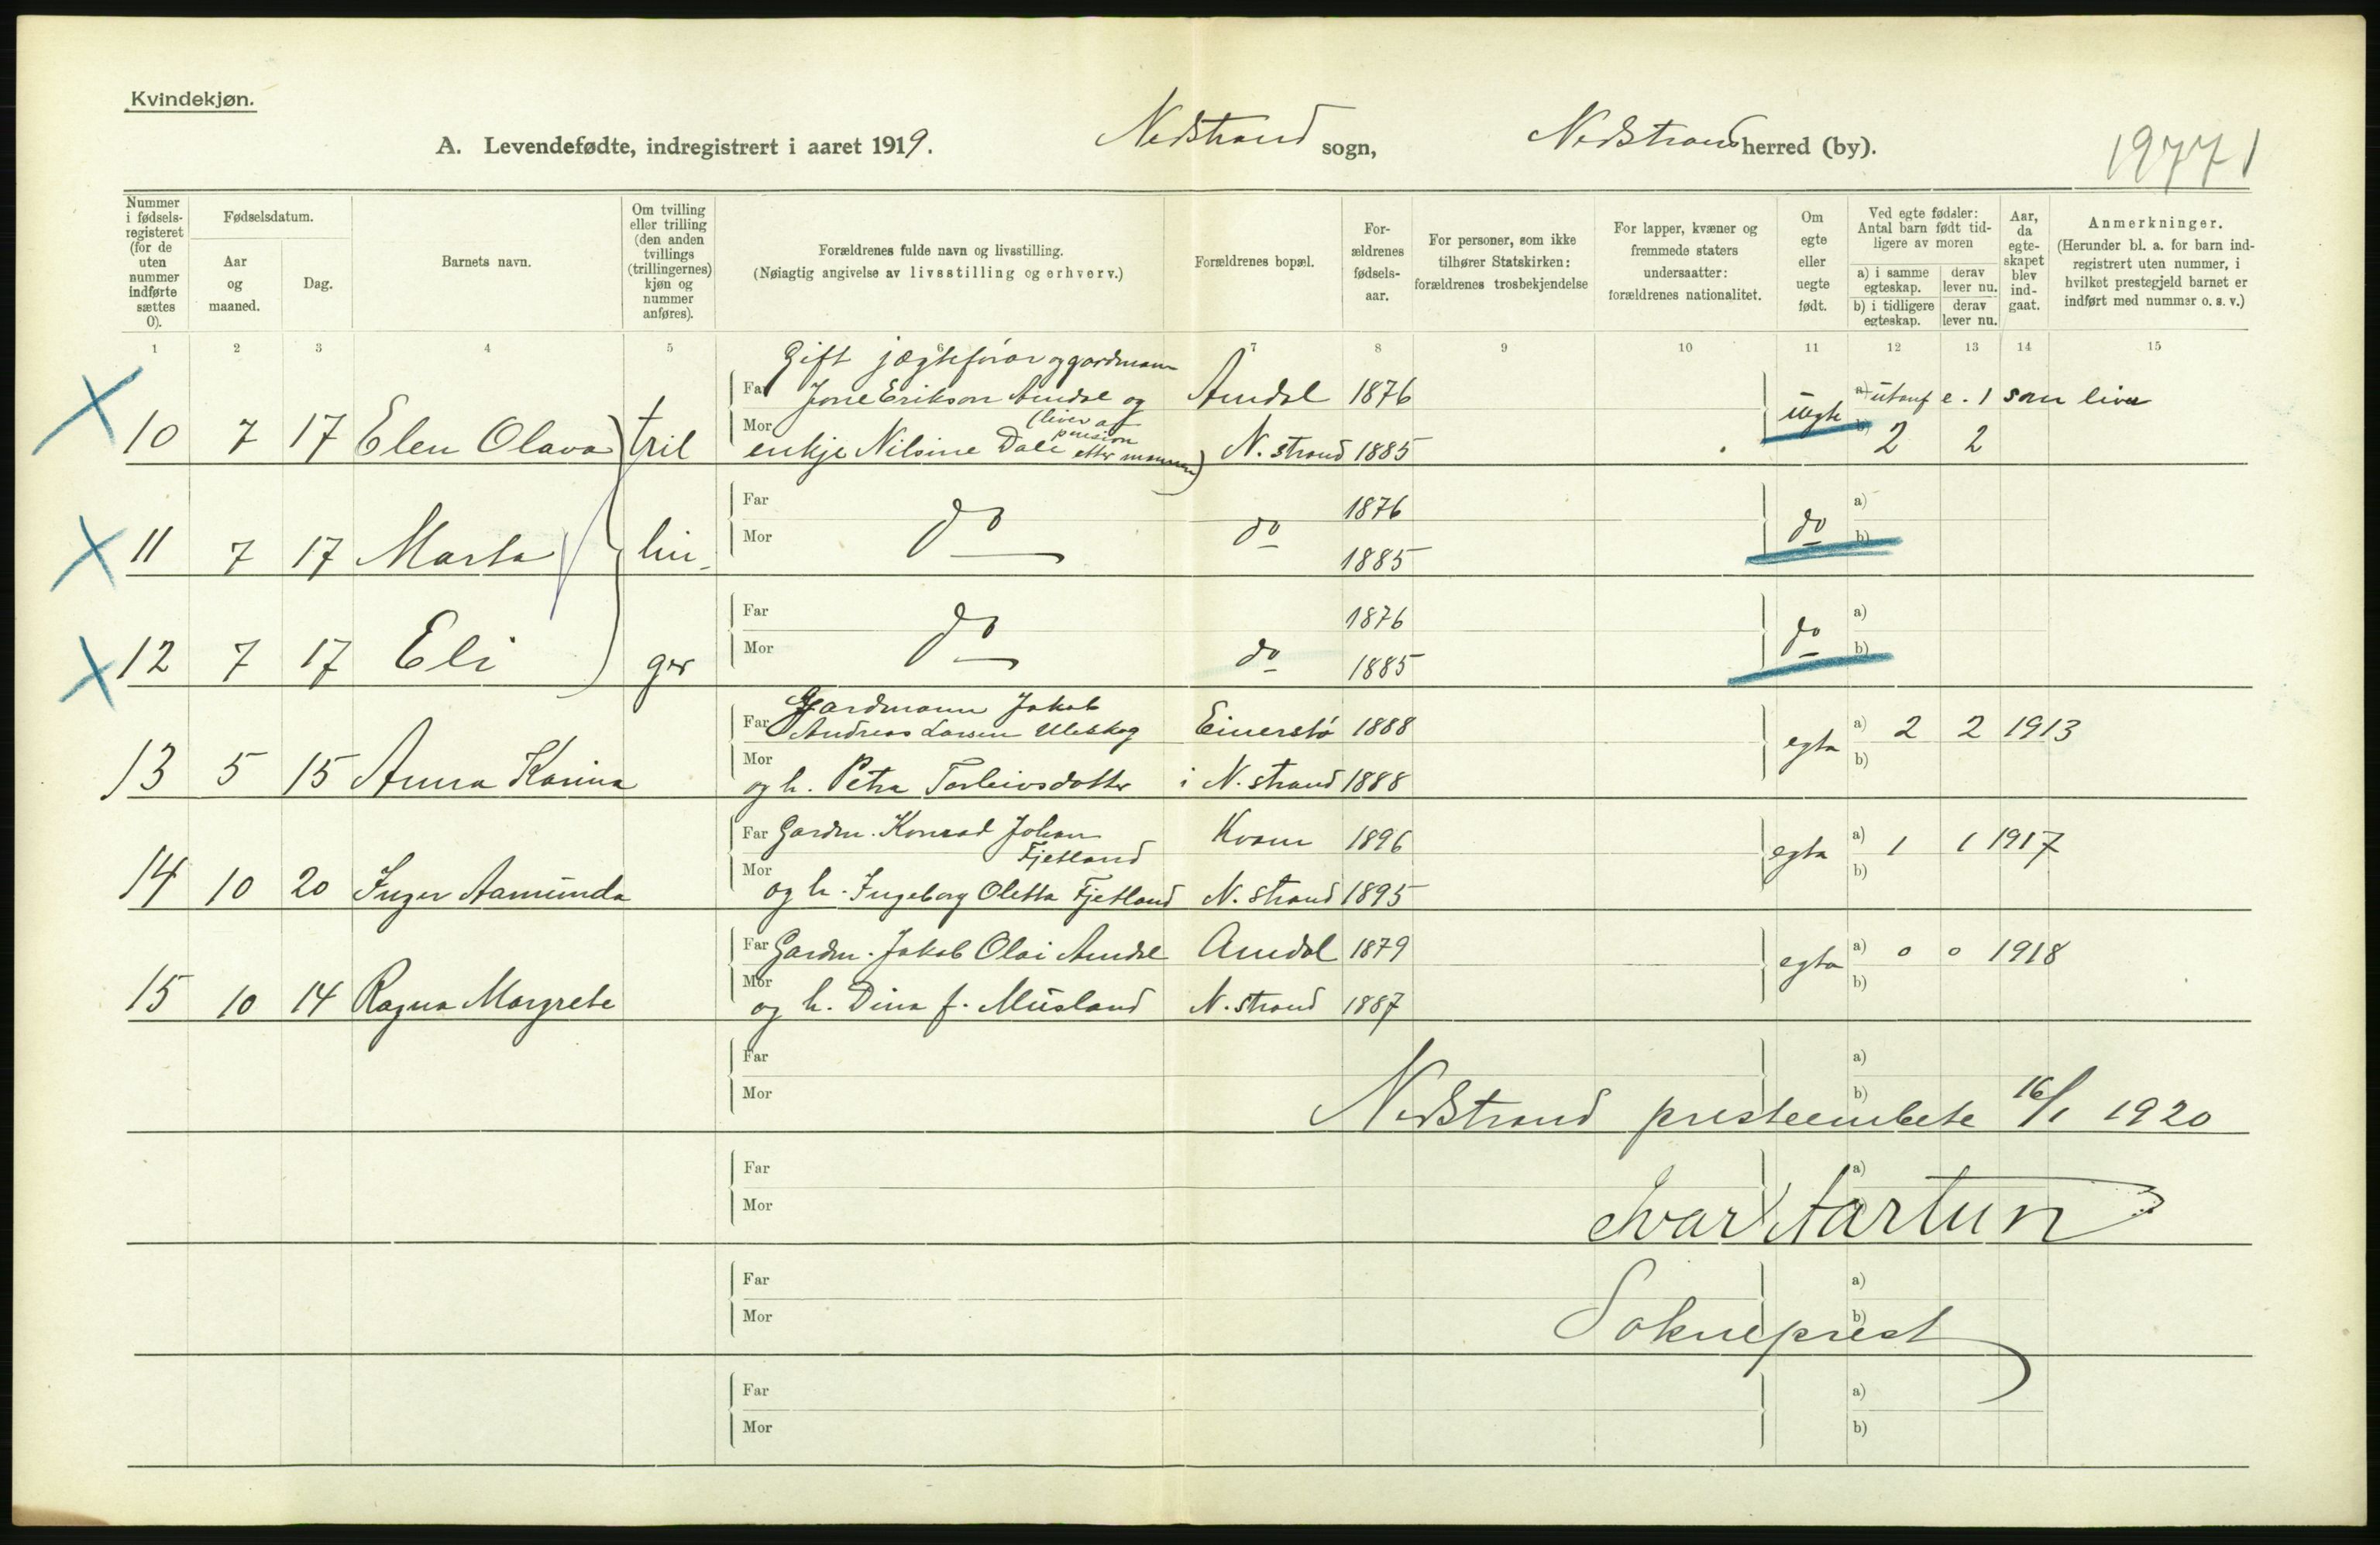 Kvindekjøn.
A. Levendefødte, indregistrert i aaret 1919. Nedstrand sogn, Nedstrand herred (by). 19771
Nummer i fødsels-registeret (for de uten nummer indførte sættes 0).
Fødselsdatum.
Aar og maaned.
Dag.
Barnets navn.
Om tvilling eller trilling (den anden tvillings (trillingernes) kjøn og nummer anføres).
Forældrenes fulde navn og livsstilling.
(Nøiagtig angivelse av livsstilling og erhverv.)
Forældrenes bopæl.
For-ældrenes fødsels-aar.
For personer, som ikke tilhører Statskirken: forældrenes trosbekjendelse
For lapper, kvæner og fremmede staters undersaatter: forældrenes nationalitet.
Om egte eller uegte født.
Ved egte fødsler: Antal barn født tid-ligere av moren
a) i samme egteskap. derav lever nu.
b) i tidligere egteskap. derav lever nu.
Aar, da egte-skapet blev ind-gaat.
Anmerkninger.
(Herunder bl. a. for barn ind-registrert uten nummer, i hvilket prestegjeld barnet er indført med nummer o. s. v.)
1 2 3 4 5 6 7 8 9 10 11 12 13 14 15
Gift jægtefører og gardmann
Far Jone Erikson Amdal og Amdal 1876 a) utanf e. 1 som liver
(liver av pension etter mannen)
10 7 17 Elen Olava tril Mor enkje Nilsine Dale N. strand 1885 uegte b) 2 2
Far do do 1876 do a)
11 7 17 Marta lin- Mor 1885 b)
Far do do 1876 do a)
12 7 17 Eli ger Mor 1885 b)
Gardmann Jakob
Far Andreas Larsen Uleskog Einerstø 1888 a) 2 2 1913
13 5 15 Anna Karina Mor og h. Petra Torleivsdotter i N. strand 1888 egta b)
Far Gardm. Konrad Johan Fjetland Kvam 1896 a) 1 1 1917
14 10 20 Inger Aamunda Mor og h. Ingeborg Oletta Fjetland N. strand 1895 egta b)
Far Gardm. Jakob Olai Amdal Amdal 1879 a) 0 0 1918
15 10 14 Ragna Margrete Mor og h. Dina f. Musland N. strand 1887 egta b)
Far a)
Mor b)
Nedstrand presteembete 16/1 1920
Far a)
Mor
Ivar Aartun
Far a)
Mor b)
Sokneprest
Far a)
Mor b)